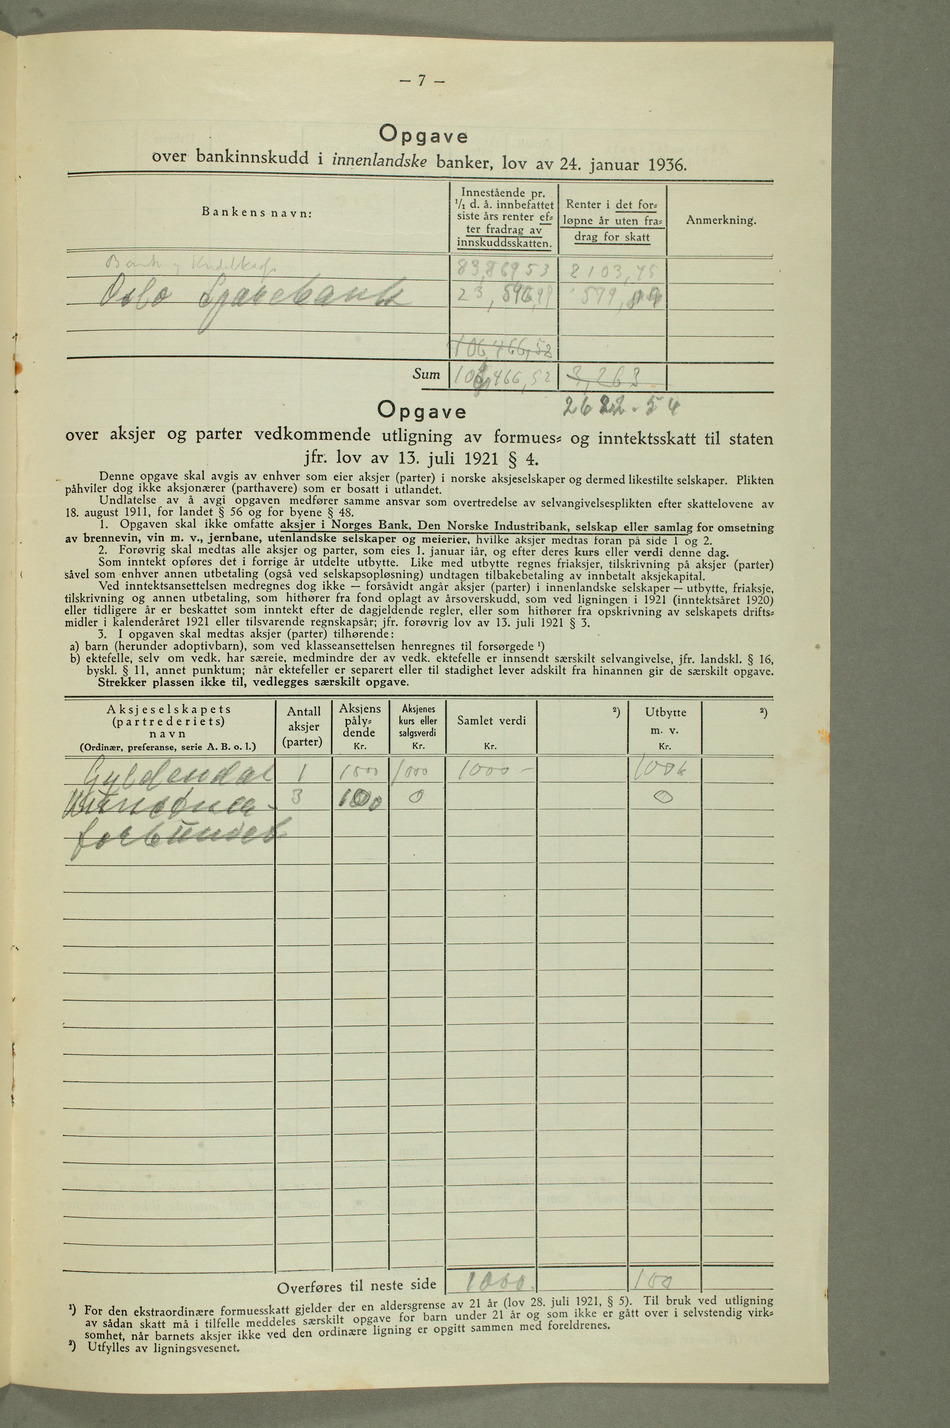 — 7 —
Opgave
over bankinnskudd i innenlandske banker, lov av 24. januar 1936.
Bankens navn:
Innestående pr. 1/1 d. å. innbefattet siste års renter efter fradrag av innskuddsskatten.
Renter i det forløpne år uten fradrag for skatt
Anmerkning.
83,869 53
2103,75
Oslo Sparebank
23, 596,99
579,
106,466,52
Sum
466,52
3,263
2622.54
Opgave
over aksjer og parter vedkommende utligning av formues= og inntektsskatt til staten
jfr. lov av 13. juli 1921 § 4.
Denne opgave skal avgis av enhver som eier aksjer (parter) i norske aksjeselskaper og dermed likestilte selskaper. Plikten
påhviler dog ikke aksjonærer (parthavere) som er bosatt i utlandet.
Undlatelse av å avgi opgaven medfører samme ansvar som overtredelse av selvangivelsesplikten efter skattelovene av
18. august 1911, for landet § 56 og for byene § 48.
1. Opgaven skal ikke omfatte aksjer i Norges Bank, Den Norske Industribank, selskap eller samlag for omsetning
av brennevin, vin m. v., jernbane, utenlandske selskaper og meierier, hvilke aksjer medtas foran på side 1 og 2.
2. Forøvrig skal medtas alle aksjer og parter, som eies 1. januar iår, og efter deres kurs eller verdi denne dag.
Som inntekt opføres det i forrige år utdelte utbytte. Like med utbytte regnes friaksjer, tilskrivning på aksjer (parter)
såvel som enhver annen utbetaling (også ved selskapsopløsning) undtagen tilbakebetaling av innbetalt aksjekapital.
Ved inntektsansettelsen medregnes dog ikke — forsåvidt angår aksjer (parter) i innenlandske selskaper — utbytte, friaksje,
tilskrivning og annen utbetaling, som hithører fra fond oplagt av årsoverskudd, som ved ligningen i 1921 (inntektsåret 1920)
eller tidligere år er beskattet som inntekt efter de dagjeldende regler, eller som hithører fra opskrivning av selskapets drifts=
midler i kalenderåret 1921 eller tilsvarende regnskapsår; jfr. forøvrig lov av 13. juli 1921 § 3.
3. I opgaven skal medtas aksjer (parter) tilhørende:
a) barn (herunder adoptivbarn), som ved klasseansettelsen henregnes til forsørgede ¹)
b) ektefelle, selv om vedk. har særeie, medmindre der av vedk. ektefelle er innsendt særskilt selvangivelse, jfr. landskl. § 16,
byskl. § 11, annet punktum; når ektefeller er separert eller til stadighet lever adskilt fra hinannen gir de særskilt opgave.
Strekker plassen ikke til, vedlegges særskilt opgave.
Aksjeselskapets (partrederiets) navn (Ordinær, preferanse, serie A. B. o. l.)
Antall aksjer (parter)
Aksjens påly= dende Kr.
Aksjenes kurs eller salgsverdi Kr.
Samlet verdi Kr.
²)
Utbytte m. v. Kr.
²)
Gyldendal 1 1000 1000 1000 –
3 100 0 0
forbundet
Overføres til neste side 1000. 100
¹) For den ekstraordinære formuesskatt gjelder der en aldersgrense av 21 år (lov 28. juli 1921, § 5). Til bruk ved utligning
av sådan skatt må i tilfelle meddeles særskilt opgave for barn under 21 år og som ikke er gått over i selvstendig virk=
somhet, når barnets aksjer ikke ved den ordinære ligning er opgitt sammen med foreldrenes.
²) Utfylles av ligningsvesenet.